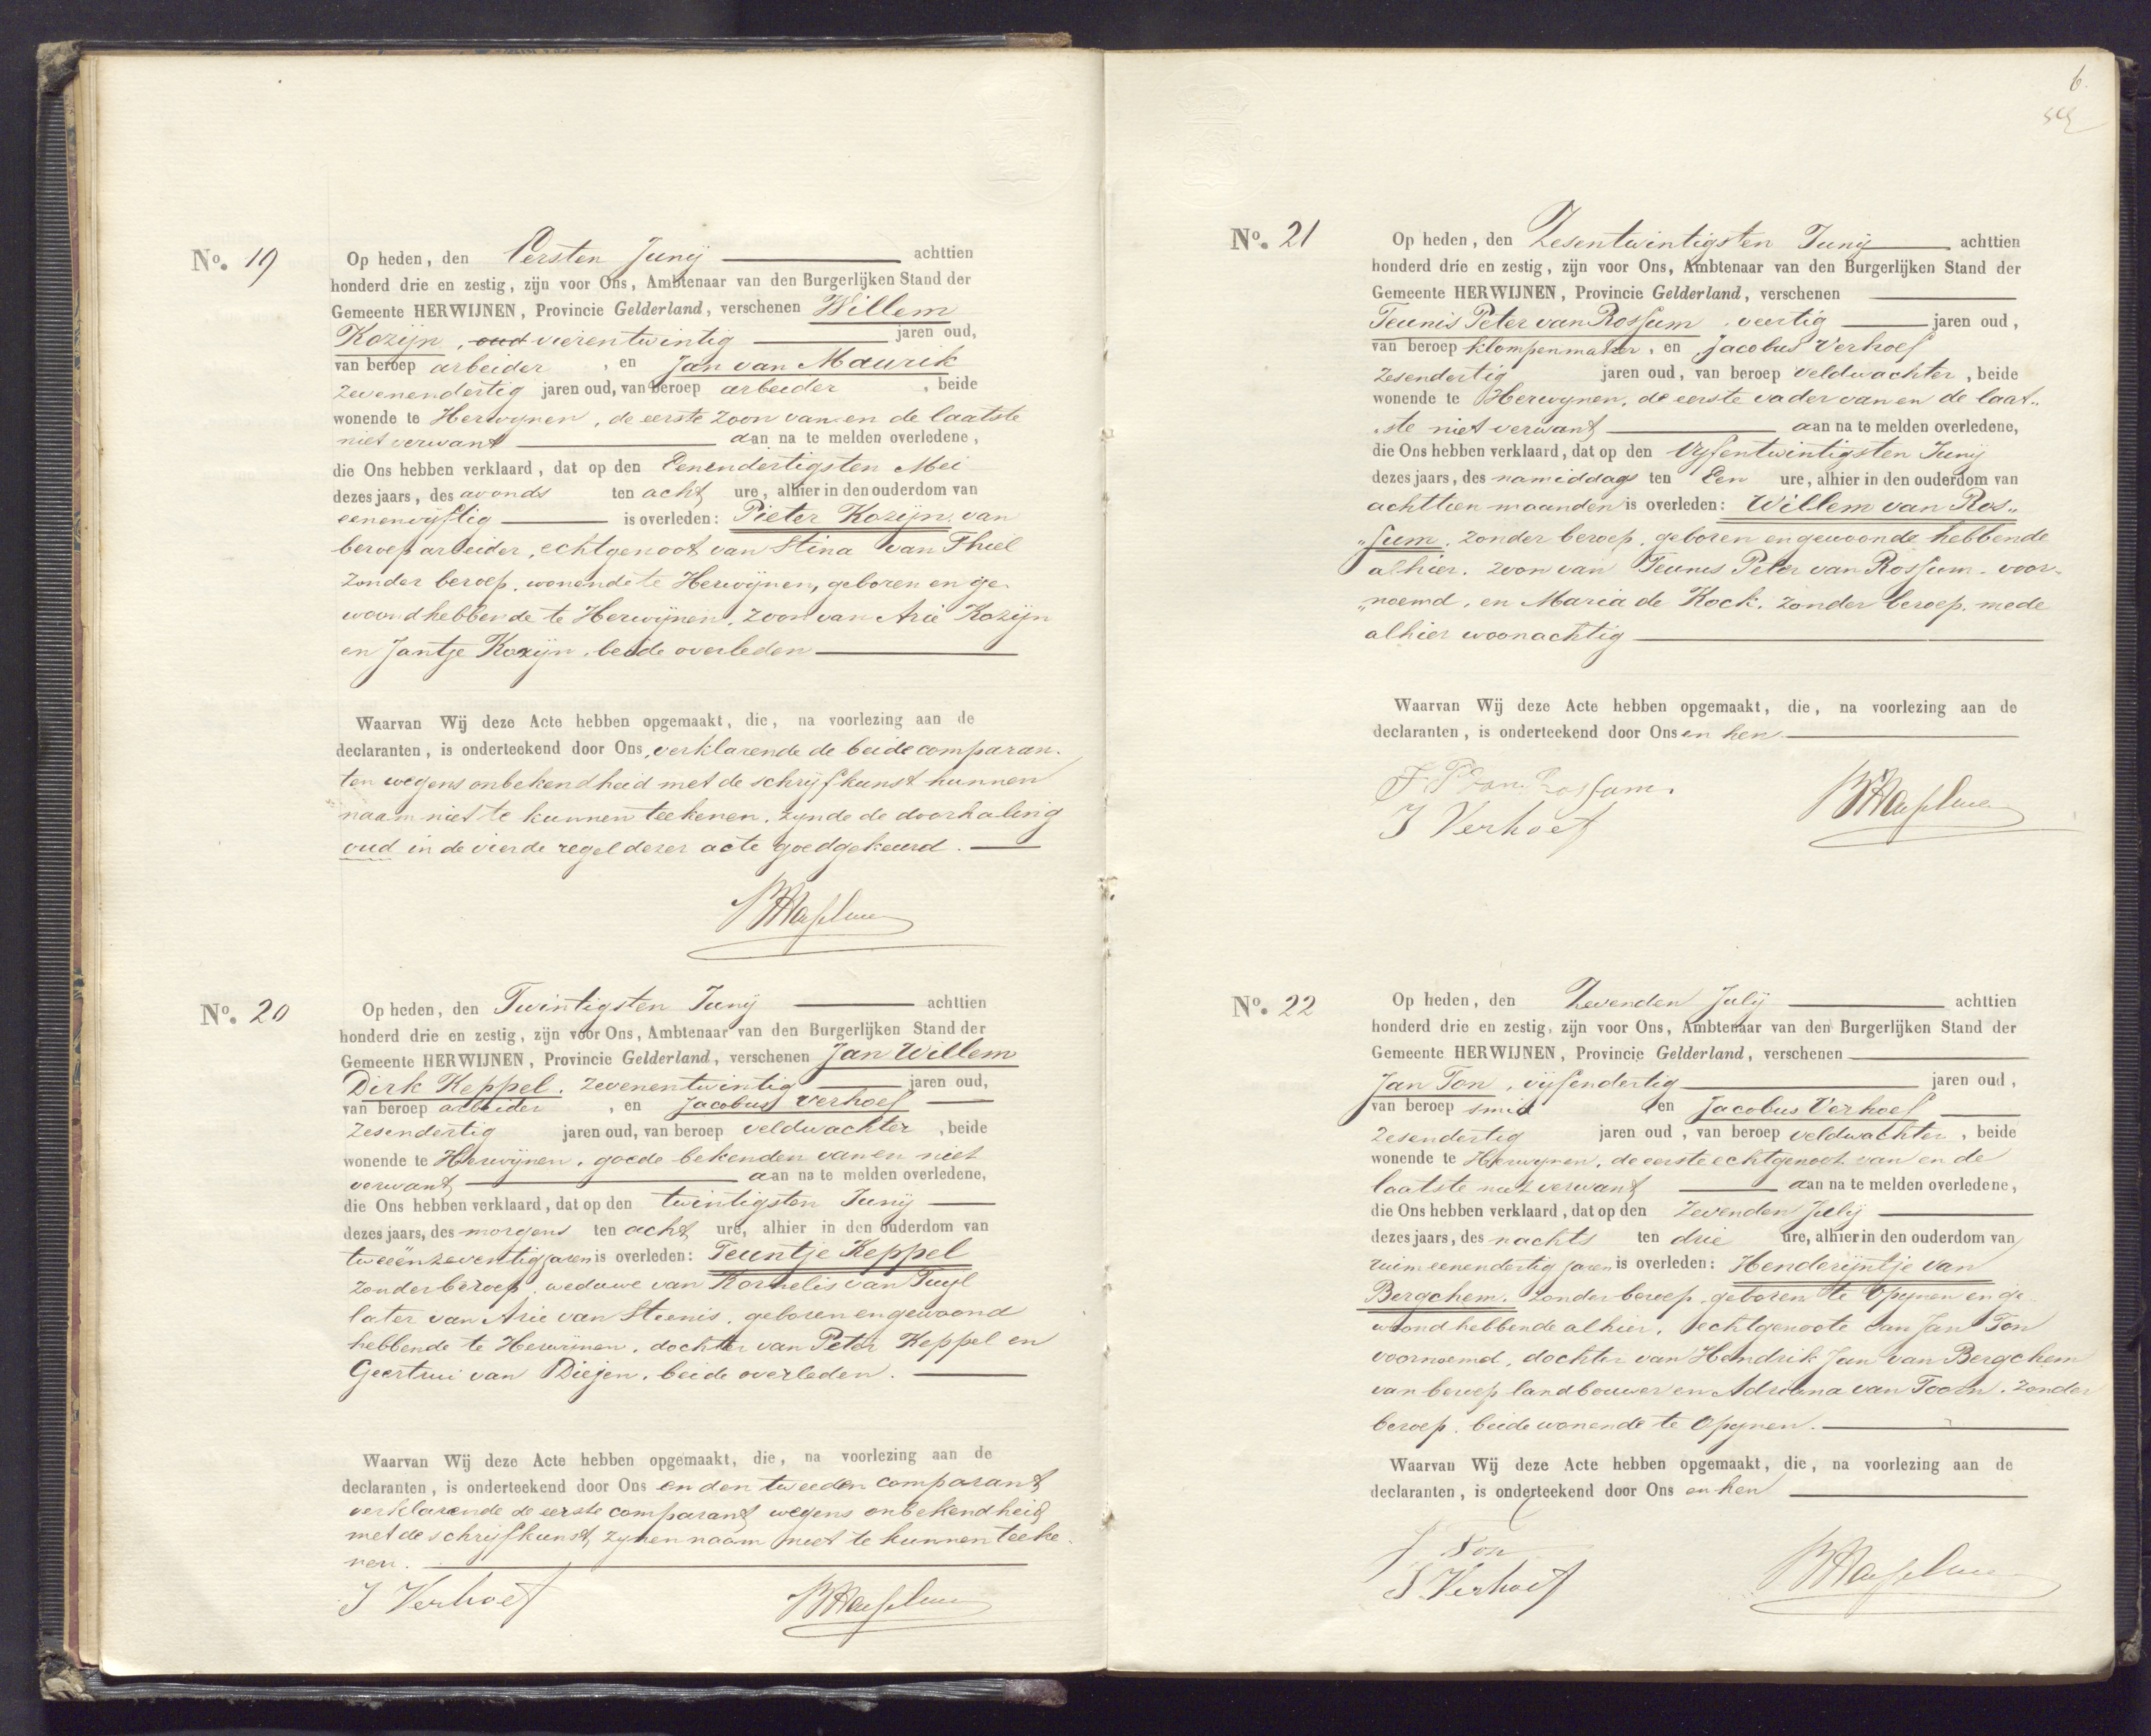 No. 19
Op heden, den Eersten Junij achttien
honderd drie en zestig, zijn voor Ons, Ambtenaar van den Burgerlijken Stand der
Gemeente HERWIJNEN, Provincie Gelderland, verschenen Willem
Kozijn, oud vierentwintig jaren oud,
van beroep arbeider, en Jan van Maurik
zevenendertig jaren oud, van beroep arbeider, beide
wonende te Herwijnen, de eerste zoon van en de laatste
niet verwant aan na te melden overledene,
die Ons hebben verklaard, dat op den Eenendertigsten Mei
dezes jaars, des avonds ten acht ure, alhier in den ouderdom van
eenenvijftig is overleden: Pieter Kozijn, van
beroep arbeider, echtgenoot van Stina van Thiel
zonder beroep, wonende te Herwijnen, geboren en ge-
woond hebbende te Herwijnen, zoon van Arie Kozijn
en Jantje Kozijn, beide overleden
Waarvan Wij deze Acte hebben opgemaakt, die, na voorlezing aan de
declaranten, is onderteekend door Ons, verklarende de beide comparan-
ten wegens onbekendheid met de schrijfkunst hunnen
naam niet te kunnen teekenen, zijnde de doorhaling
oud in de vierde regel dezer acte goedgekeurd.
No. 20
Op heden, den Twintigsten Junij achttien
honderd drie en zestig, zijn voor Ons, Ambtenaar van den Burgerlijken Stand der
Gemeente HERWIJNEN, Provincie Gelderland, verschenen Jan Willem
Dirk Keppel, zevenentwintig jaren oud,
van beroep arbeider, en Jacobus Verhoef
zesendertig jaren oud, van beroep veldwachter, beide
wonende te Herwijnen, goede bekenden van en niet
verwant aan na te melden overledene,
die Ons hebben verklaard, dat op den twintigsten Junij
dezes jaars, des morgens ten acht ure, alhier in den ouderdom van
tweeënzeventig jaren is overleden: Teuntje Keppel
zonder beroep, weduwe van Kornelis van Tuijl
later van Arie van Steenis, geboren en gewoond
hebbende te Herwijnen, dochter van Peter Keppel en
Geertrui van Diejen, beide overleden.
Waarvan Wij deze Acte hebben opgemaakt, die, na voorlezing aan de
declaranten, is onderteekend door Ons en den tweeden comparant
verklarende de eerste comparant wegens onbekendheid
met de schrijfkunst zijnen naam niet te kunnen teeke-
nen.
J Verhoef
6.
No. 21
Op heden, den Zesentwintigsten Junij achttien
honderd drie en zestig, zijn voor Ons, Ambtenaar van den Burgerlijken Stand der
Gemeente HERWIJNEN, Provincie Gelderland, verschenen
Teunis Peter van Rossum, veertig jaren oud,
van beroep klompenmaker, en Jacobus Verhoef
zesendertig jaren oud, van beroep veldwachter, beide
wonende te Herwijnen, de eerste vader van en de laat„
„ste niet verwant aan na te melden overledene,
die Ons hebben verklaard, dat op den Vijfentwintigsten Junij
dezes jaars, des namiddags ten Een ure, alhier in den ouderdom van
achttien maanden is overleden: Willem van Ros„
„sum, zonder beroep, geboren en gewoond hebbende
alhier, zoon van Teunis Peter van Rossum, voor„
„noemd, en Maria de Kock, zonder beroep, mede
alhier woonachtig
Waarvan Wij deze Acte hebben opgemaakt, die, na voorlezing aan de
declaranten, is onderteekend door Ons en hen.
T. P van Rossum.
J Verhoef
No. 22
Op heden, den Zevenden Julij achttien
honderd drie en zestig, zijn voor Ons, Ambtenaar van den Burgerlijken Stand der
Gemeente HERWIJNEN, Provincie Gelderland, verschenen
Jan Ton, vijfendertig jaren oud,
van beroep smid, en Jacobus Verhoef
zesendertig jaren oud, van beroep veldwachter, beide
wonende te Herwijnen, de eerste echtgenoot van en de
laatste niet verwant aan na te melden overledene,
die Ons hebben verklaard, dat op den Zevenden Julij
dezes jaars, des nachts ten drie ure, alhier in den ouderdom van
ruim eenendertig jaren is overleden: Henderijntje van
Bergchem, zonder beroep, geboren te Opijnen en ge-
woond hebbende alhier, echtgenoote van Jan Ton
voornoemd, dochter van Hendrik Jan van Bergchem
van beroep landbouwer en Adriana van Toorn, zonder
beroep, beide wonende te Opijnen.
Waarvan Wij deze Acte hebben opgemaakt, die, na voorlezing aan de
declaranten, is onderteekend door Ons en hen
J Ton
J Verhoef